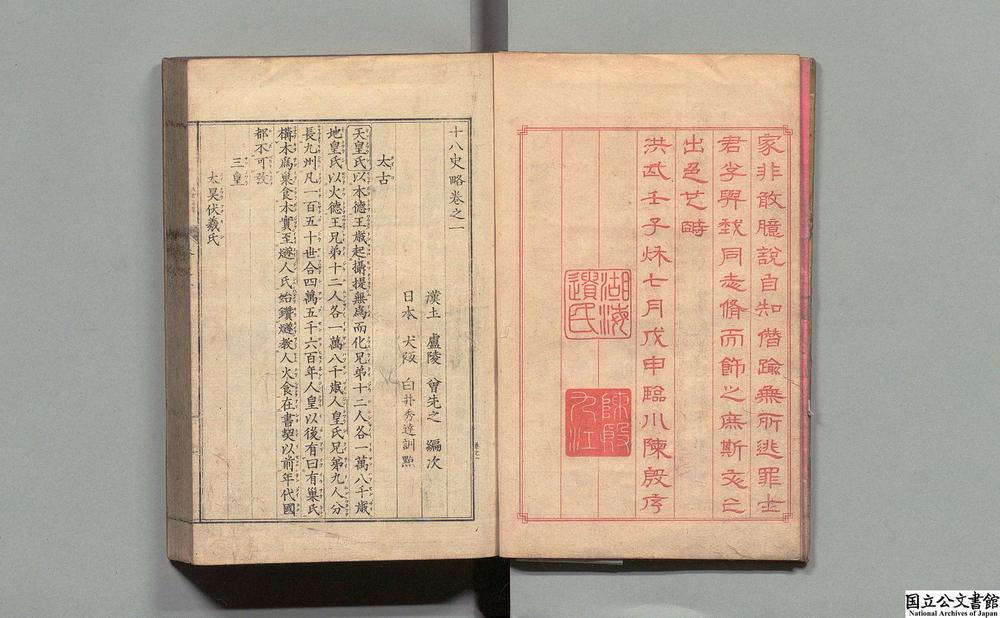 家非敢臆說自知僭踰無所逃罪士
君子與我同志脩而飾之庶斯文之
出色也時
洪武壬子秋七月戊申臨川陳殷序
湖海
遺氏
陳殷
十八史略卷之一
漢土 盧陵 曾先之 編次
日本 大阪 白井秀達訓點
太古
天皇氏以木德王歲起攝提無爲而化兄弟十二人各一萬八千歲
地皇氏以火德王兄弟十二人各一萬八千歲人皇氏兄弟九人分
長九州凡一百五十世合四萬五千六百年人皇以後有曰有巢氏
構木爲巢食木實至燧人氏始鑽燧教人火食在書契以前年代國
都不可攷
三皇
太昊伏羲氏
国立公文書館
National Archives of Japan